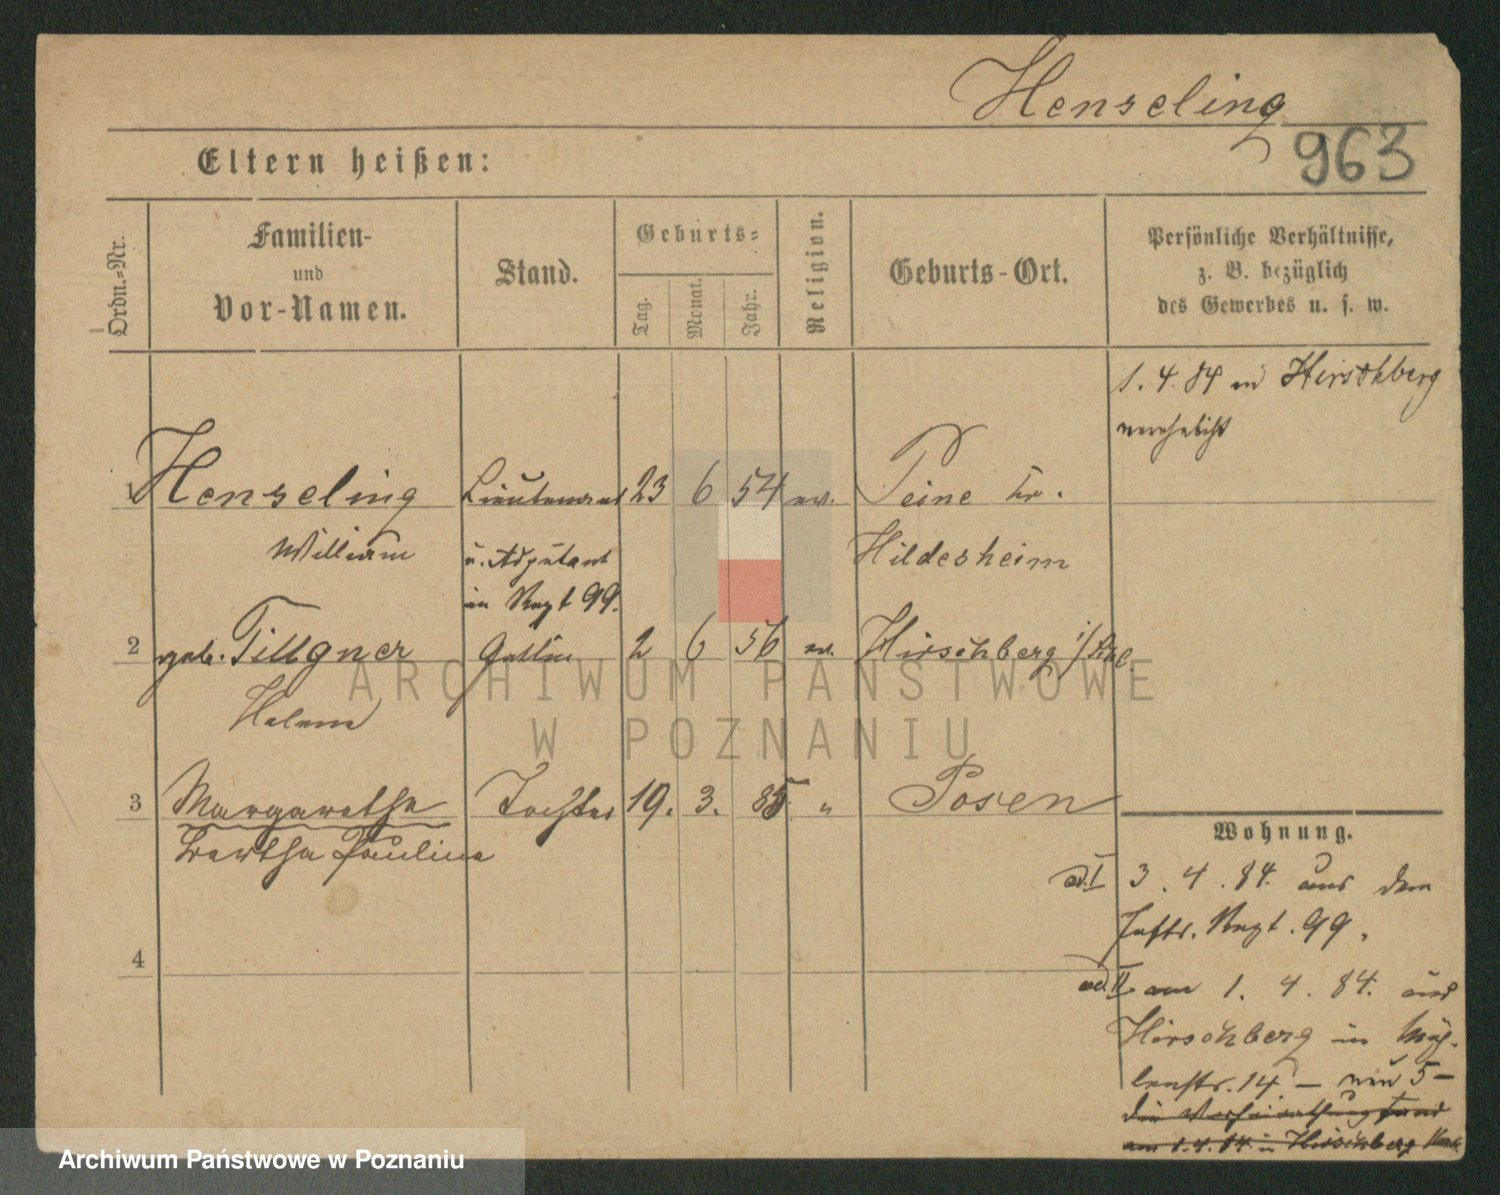 Henseling
963
Eltern heißen:
Ordn.-Nr.
Familien-
und
Vor-Namen.
Stand.
Geburts-
Tag.
Monat.
Jahr.
Religion.
Geburts-Ort.
Persönliche Verhältnisse,
z. B. bezüglich
des Gewerbes u. s. w.
1. 4. 84 in Hirschberg
verehelicht
1 Henseling Lieutenant 23 6 54 ev. Peine Kr.
William u. Adjutant Hildesheim
im Regt 99.
2 geb. Tillgner Gattin 2 6 56 ev. Hirschberg i/Schl.
Helene
3 Margarethe Tochter 19. 3. 85. " Posen
Bertha Pauline
4
Wohnung.
ad. I 3. 4. 84. aus dem
Inftr. Regt. 99.
ad. II am 1. 4. 84. aus
Hirschberg in Müh-
lenstr. 14 — neu 5 —
die Verheirathung fand
am 1.4.84 in Hirschberg
ARCHIWUM PAŃSTWOWE
W POZNANIU
Archiwum Państwowe w Poznaniu